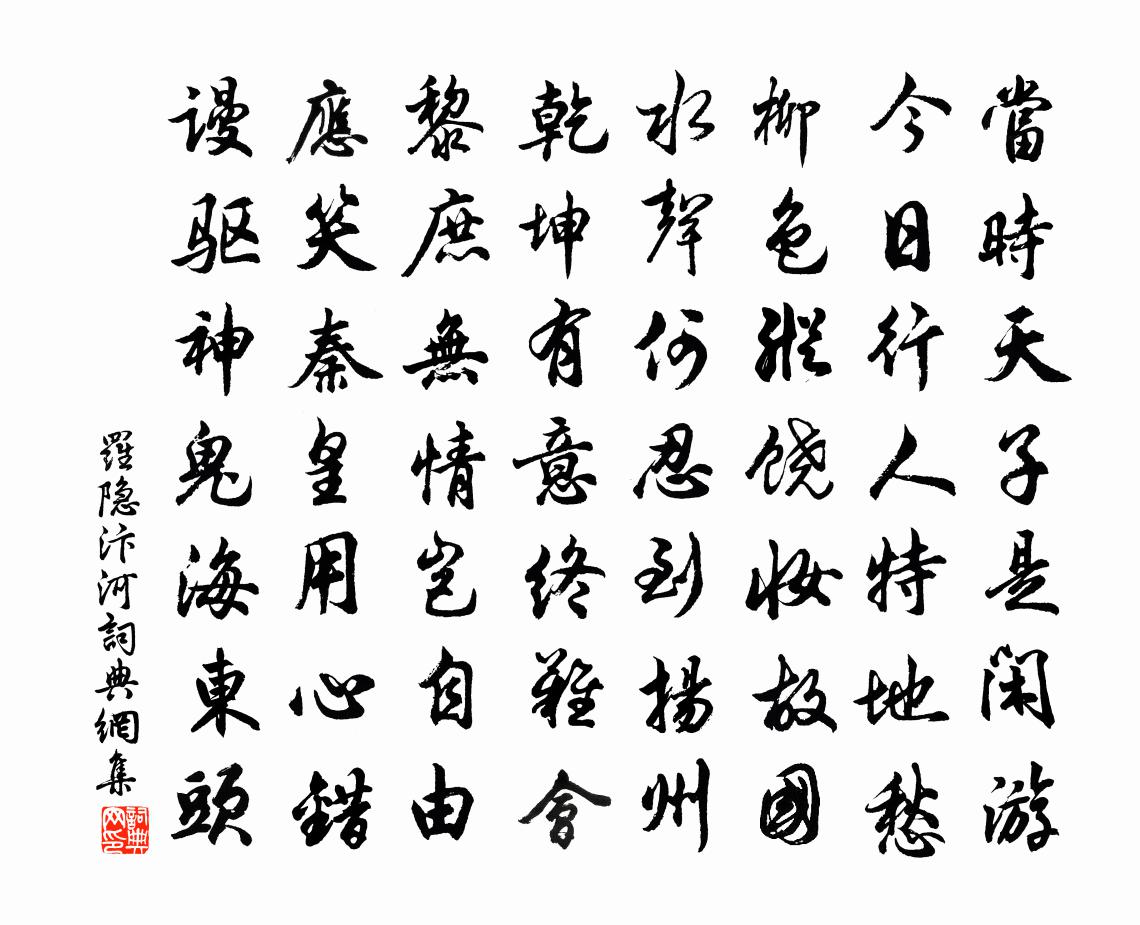 當時天子是闲游
今日行人特地愁
柳色縱饶妆故國
水聲何忍到揚州
乾坤有意終難會
黎庶無情岂自由
應笑秦皇用心錯
谩驱神鬼海東頭
羅隐汴河詞典網集
詞典网印